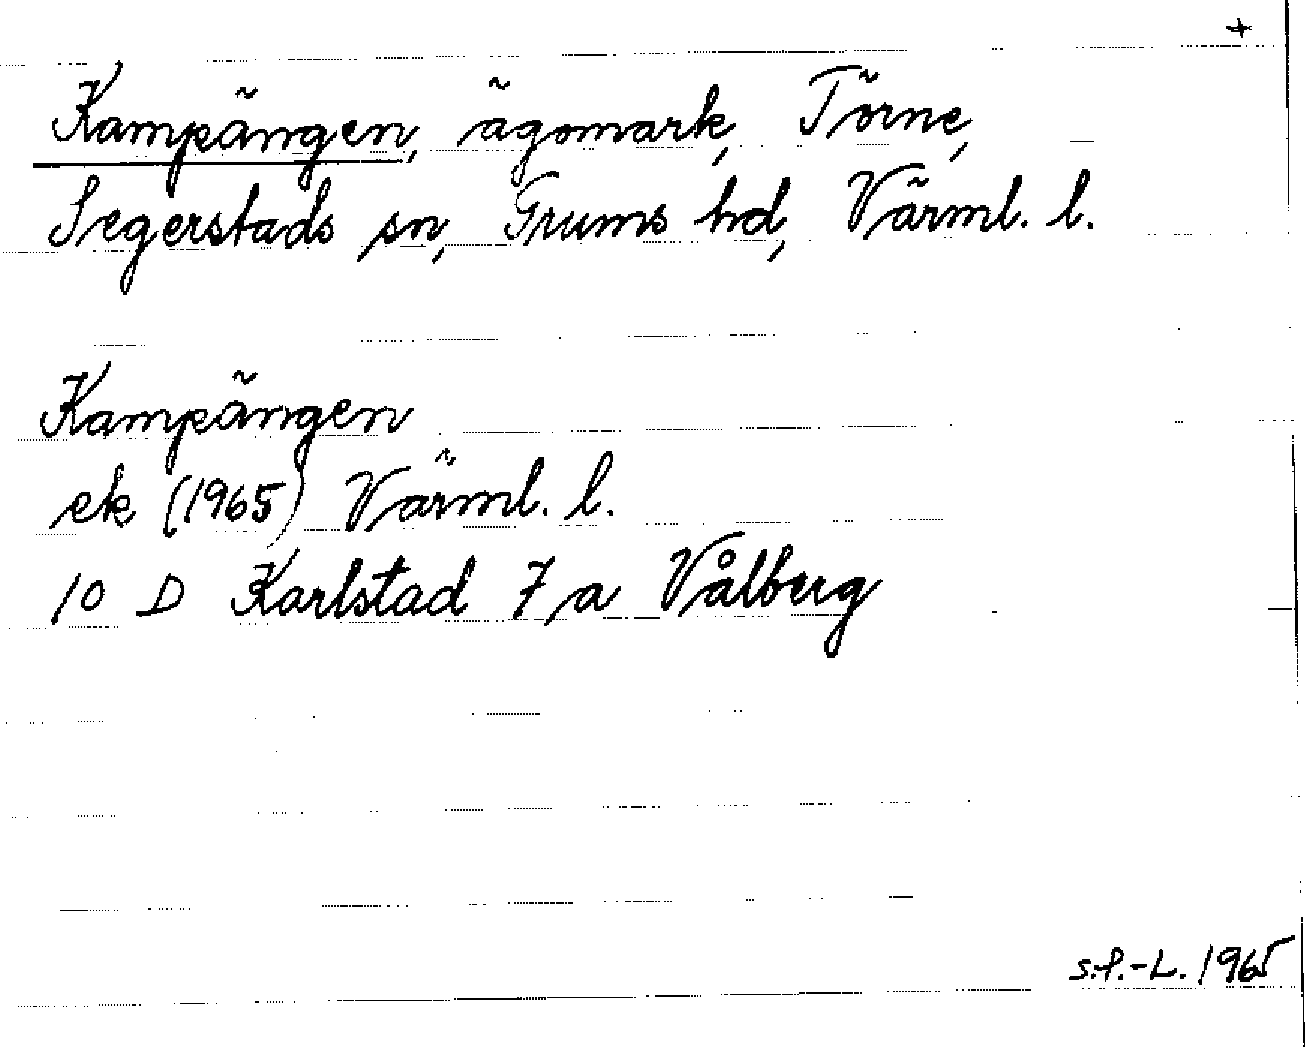 +
Kampängen, ägomark, Törne,
Segerstads sn, Grums hd, Värml. l.
Kampängen
ek (1965) Värml. l.
10 D Karlstad 7 a Vålberg
S.f.-L. 1965